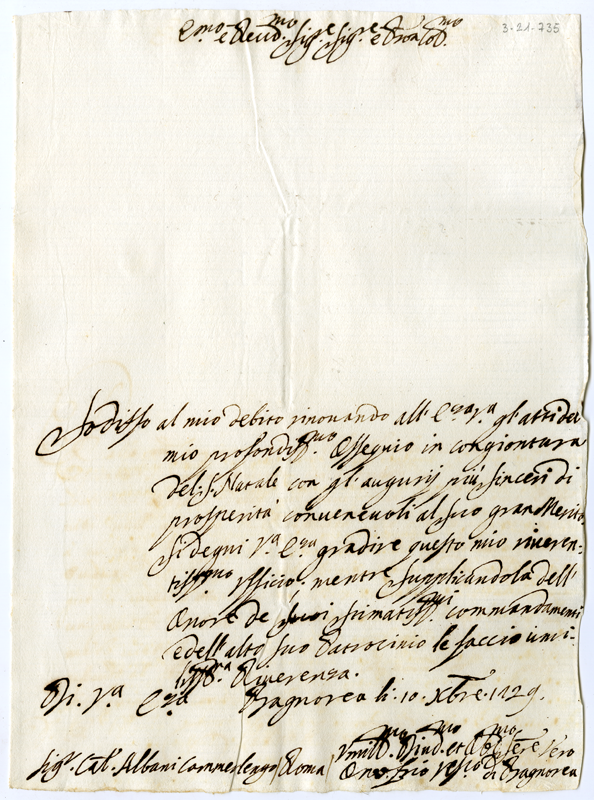 E.mo e Reud.mo Sig.re Sig.re e Pron Col.mo
3-21-735
Sodisfo al mio debito rinouando all' E.za V.a gl'atti dei
mio profondiss.mo Ossequio in congiontura
del S. Natale con gl'augurij più sinceri di
prosperità conueneuoli al suo gran Merito
Si degni V.a E.za gradire questo mio riueren-
tiss.mo Vfficio. mentre supplicandola dell'
Onore de suoi stimatiss.mi commandamenti
e dell'alto suo Patrocinio le faccio umi-
liss.ma Riuerenza.
Di V.a E.za Bagnorea li 10. Xbre. 1729.
Vmill.mo Diuot.mo et Obl.mo Sere Vero
Sig.r Cal. Albani Commerlengo Roma Onofrio Ves.o di Bagnorea